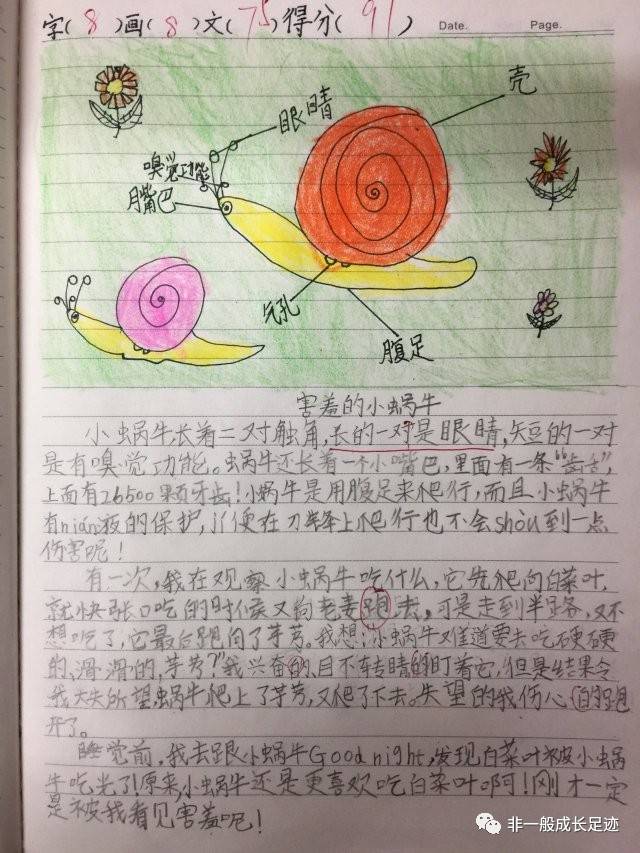 字(8)画(8)文(75)得分(91)
Date.
Page.
壳
眼睛
嗅觉功能
嘴巴
气孔
腹足
害羞的小蜗牛
小蜗牛长着二对触角,长的一对是眼睛,短的一对
是有嗅觉功能。蜗牛还长着一个小嘴巴,里面有一条“齿舌”,
上面有26500颗牙齿!小蜗牛是用腹足来爬行,而且小蜗牛
有nián液的保护,儿便在刀锋上爬行也不会shòu到一点
伤害呢!
有一次,我在观察小蜗牛吃什么,它先爬向白菜叶,
就快张口吃的时候又向老姜跑去,可是走到半路,又不
想吃了,它最后跑向了芋艿。我想:小蜗牛又难道要去吃硬硬
的、滑滑的,芋艿?”我兴奋的、目不转睛的盯着它,但是结果令
我大失所望,蜗牛爬上了芋艿,又爬了下去。失望的我伤心的跑
开了。
睡觉前,我去跟小蜗牛Good night,发现白菜叶被小蜗
牛吃光了!原来,小蜗牛还是更喜欢吃白菜叶啊!刚才一定
是被我看见害羞呢!
非一般成长足迹